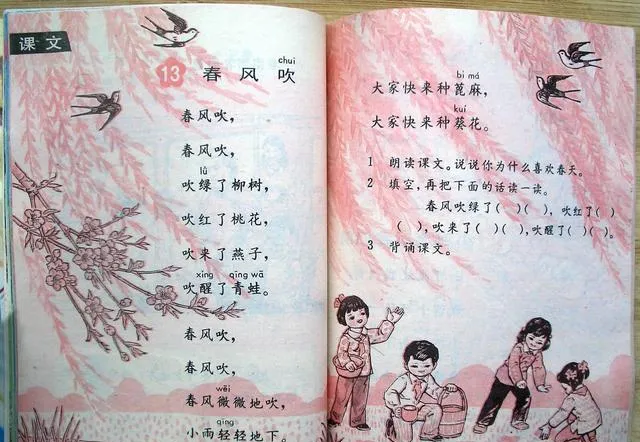 课文
chuī
13 春风吹
春风吹，
春风吹，
lǜ
吹绿了柳树，
吹红了桃花，
吹来了燕子，
xǐng qīng wā
吹醒了青蛙。
春风吹，
春风吹，
wēi
春风微微地吹，
qīng
小雨轻轻地下。
bì má
大家快来种蓖麻，
kuí
大家快来种葵花。
1 朗读课文。说说你为什么喜欢春天。
2 填空，再把下面的话读一读。
春风吹绿了（ ）（ ），吹红了（ ）
（ ），吹来了（ ）（ ），吹醒了（ ）（ ）。
3 背诵课文。